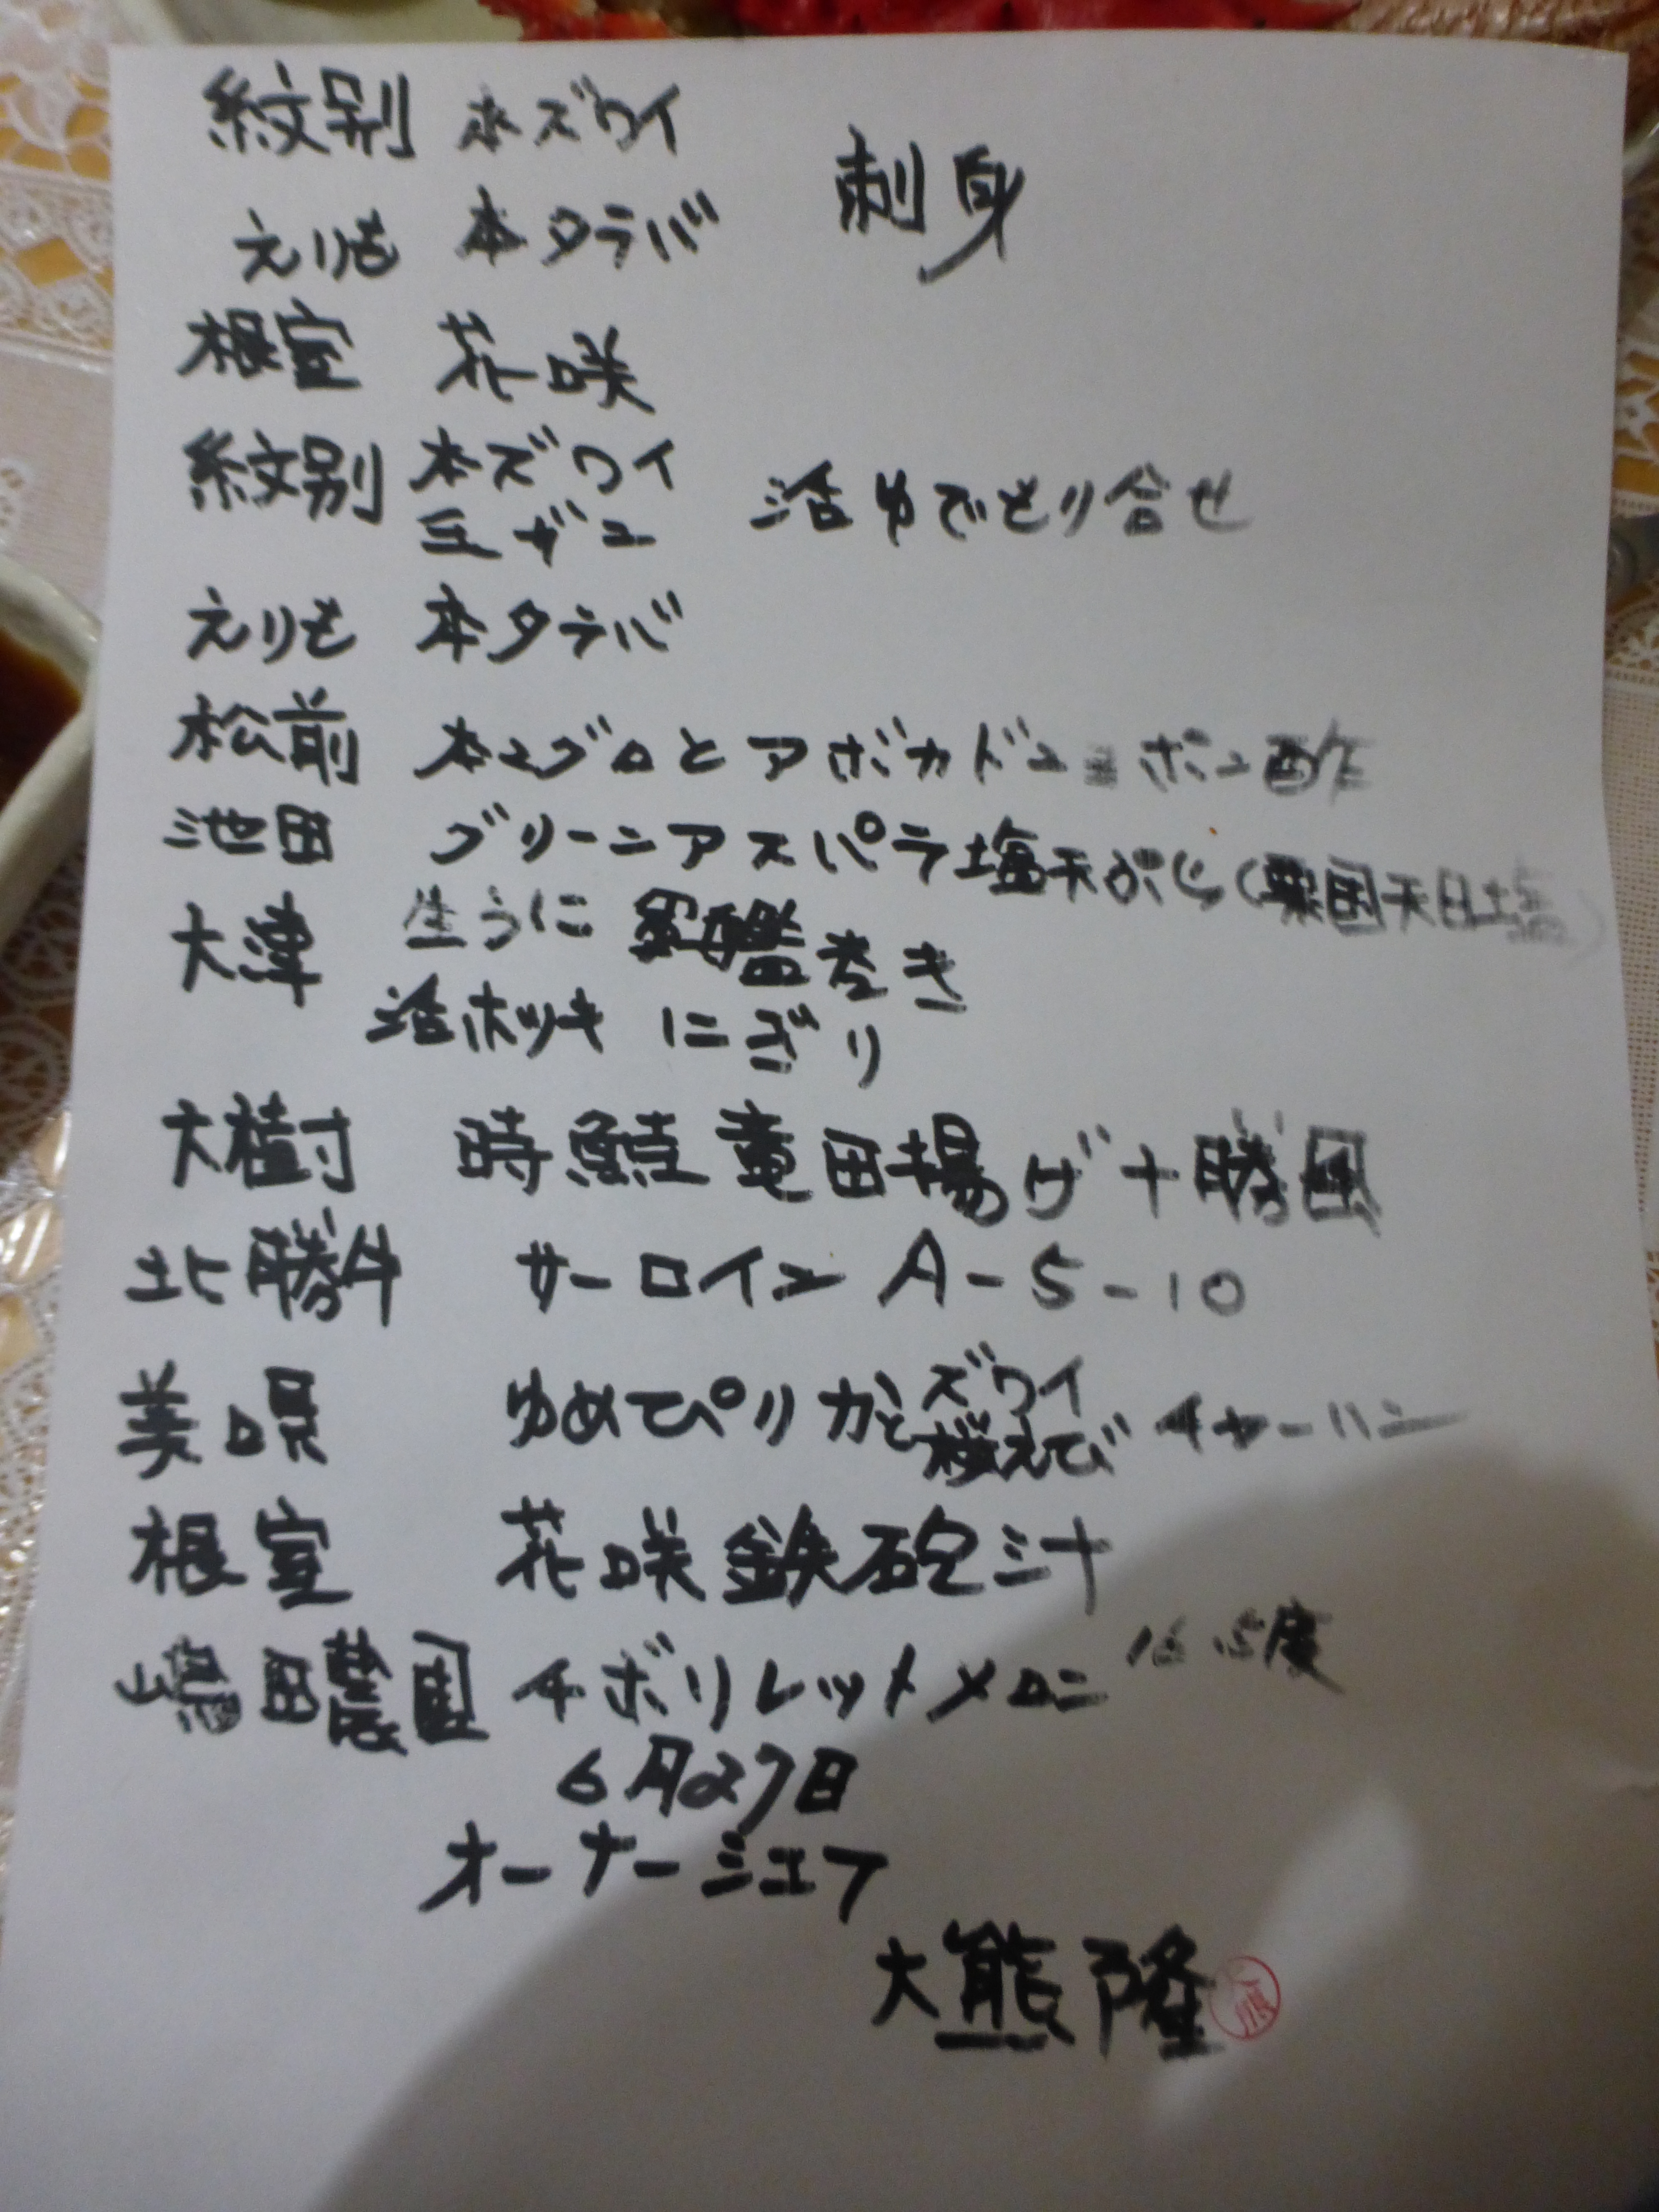 紋別 本ズワイ
えりも 本タラバ 刺身
根室 花咲
紋別 本ズワイ
活ゆでとり合せ
えりも 本タラバ
松前 本マグロとアボカド ポン酢
池田 グリーンアスパラ塩天ぷら(粟国天日塩)
大津 生うに 軍艦巻き
活ホッキ にぎり
大樹 時鮭竜田揚げ十勝風
北勝牛 サーロイン A-5-10
美唄 ゆめぴりかとズワイ
桜えび チャーハン
根室 花咲鉄砲汁
嶋田農園 キボリレットメロン
6月27日
オーナーシェフ
大熊隆